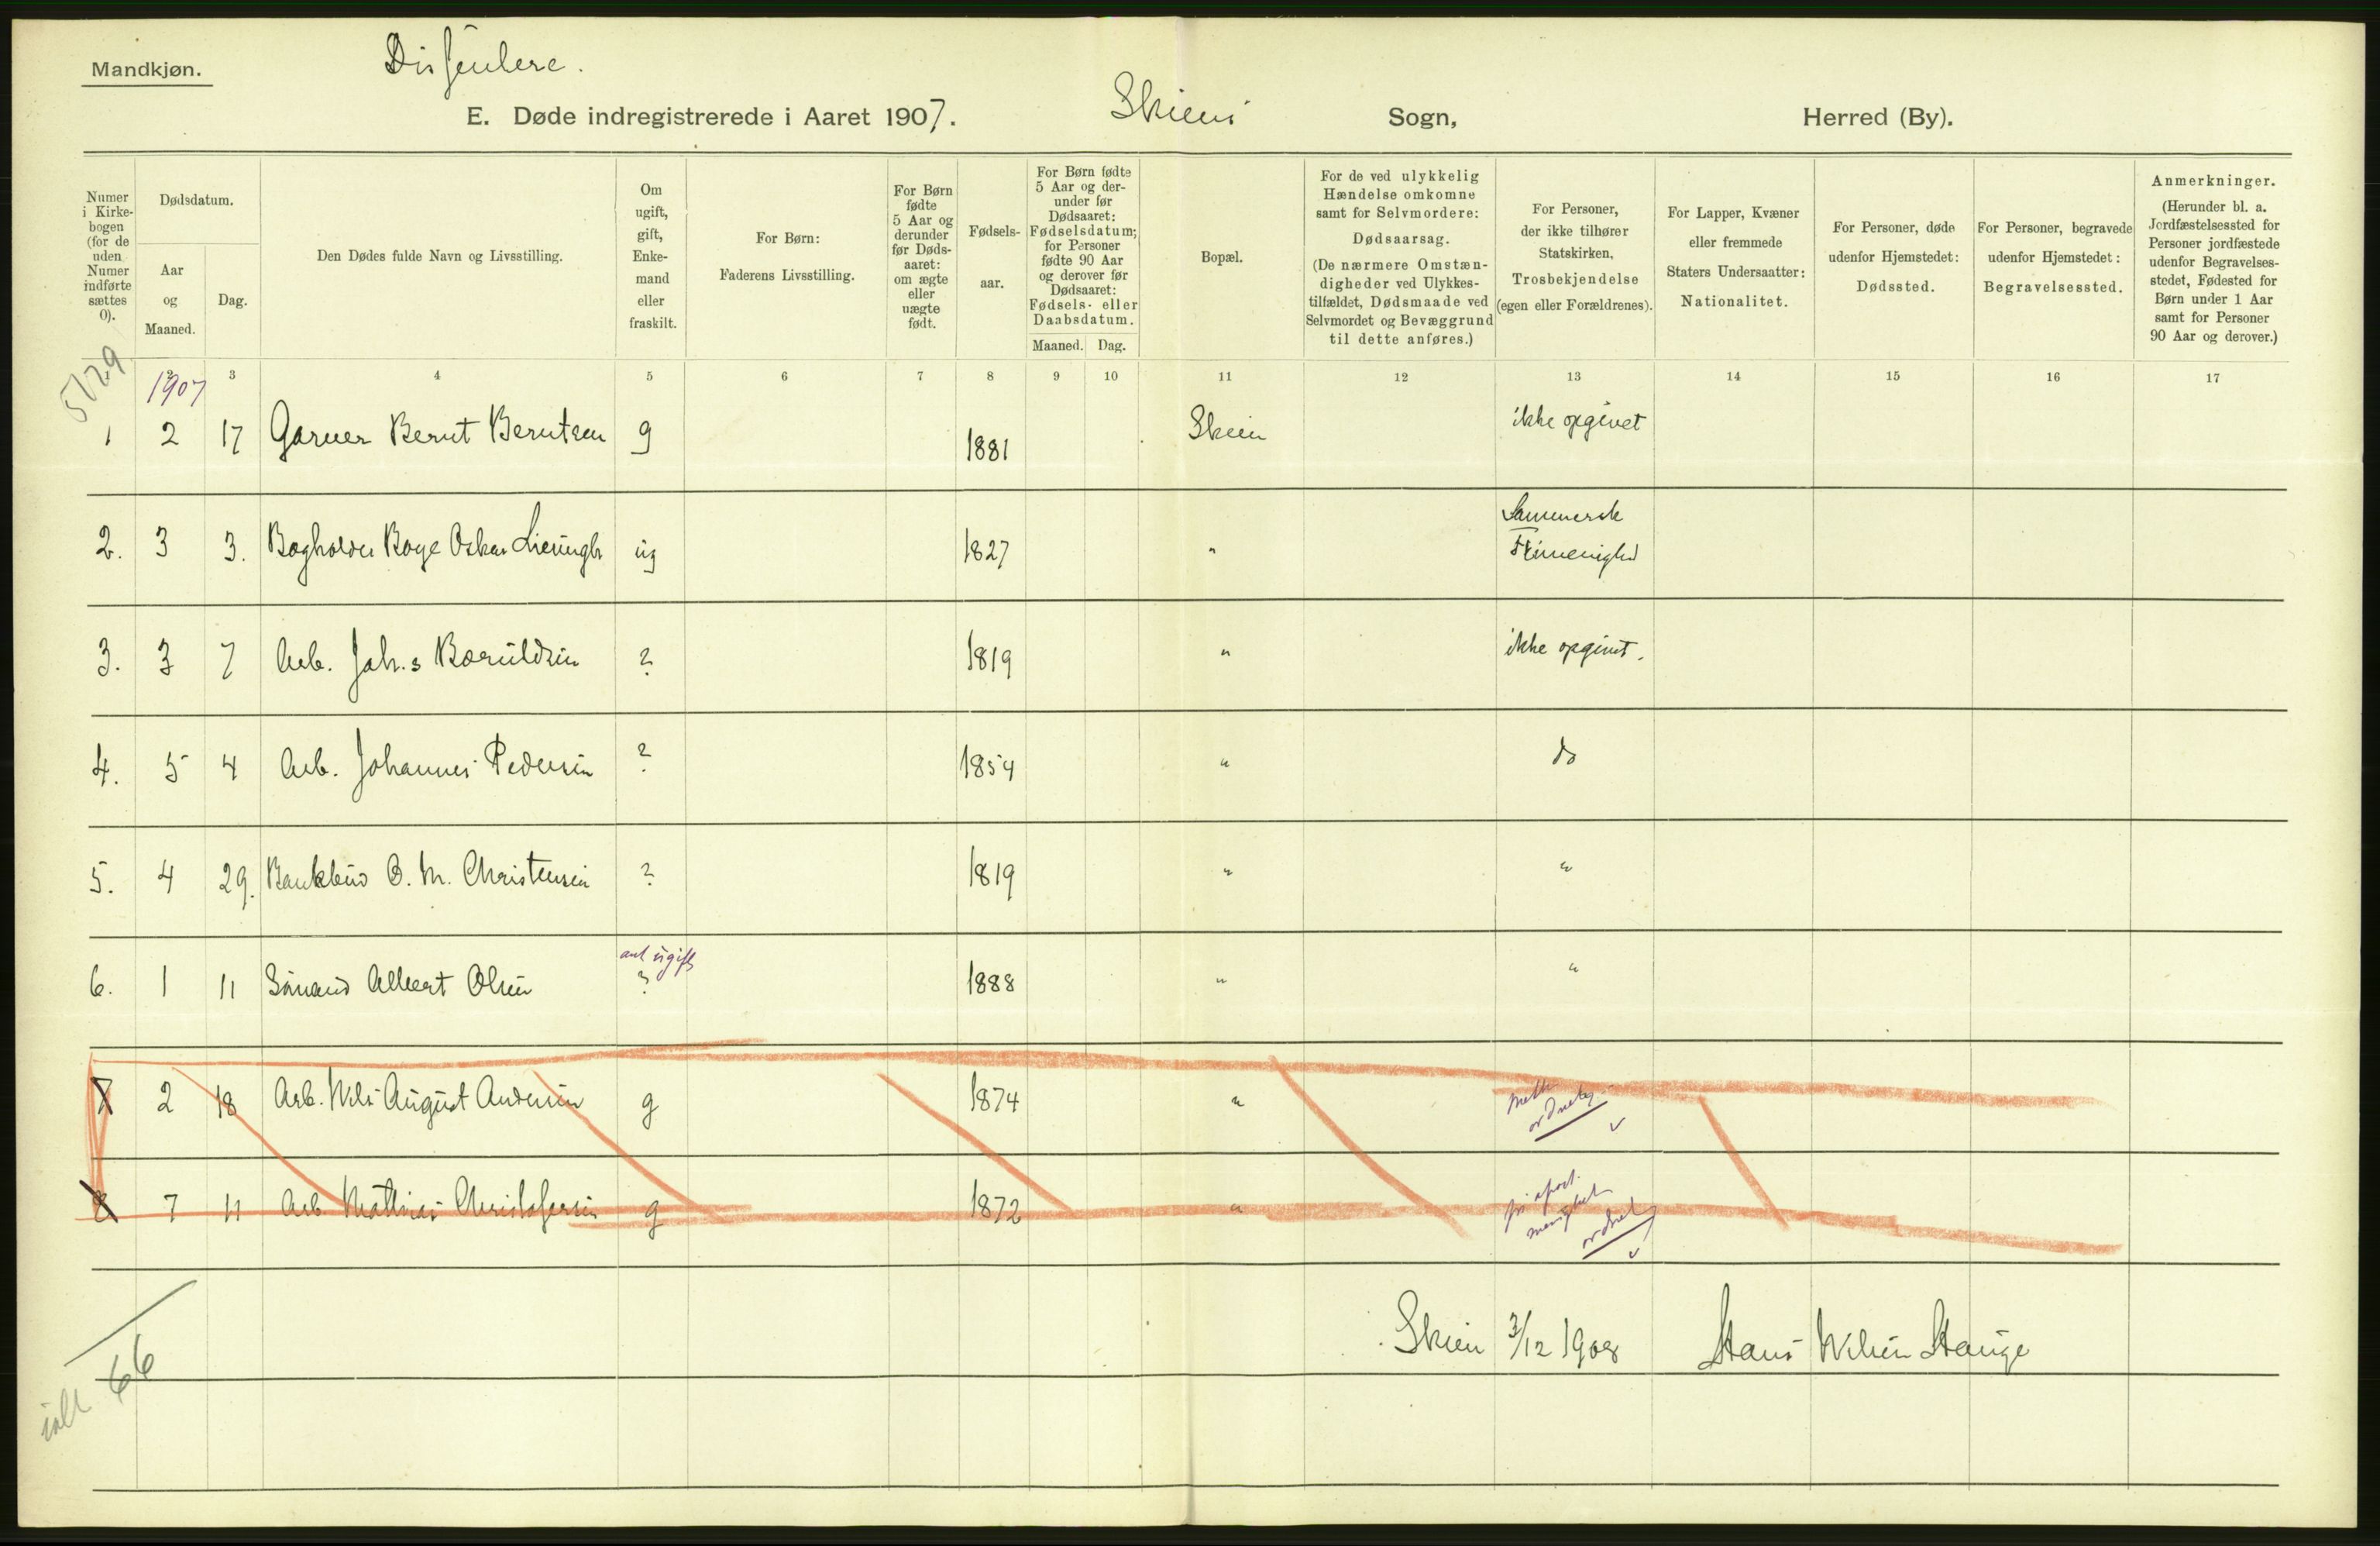 Mandkjøn.
Dissentere.
E. Døde indregistrerede i Aaret 1907.
Skiens
Sogn,
Herred (By).
Numer
i Kirke-
bogen
(for de
uden
Numer
indførte
sættes
0).
Dødsdatum.
Aar
og
Maaned.
Dag.
Den Dødes fulde Navn og Livsstilling.
Om
ugift,
gift,
Enke-
mand
eller
fraskilt.
For Børn:
Faderens Livsstilling.
For Børn
fødte
5 Aar og
derunder
før Døds-
aaret:
om ægte
eller
uægte
født.
Fødsels-
aar.
For Børn fødte
5 Aar og der-
under før
Dødsaaret:
Fødselsdatum;
for Personer
fødte 90 Aar
og derover før
Dødsaaret:
Fødsels- eller
Daabsdatum.
Maaned. Dag.
Bopæl.
For de ved ulykkelig
Hændelse omkomne
samt for Selvmordere:
Dødsaarsag.
(De nærmere Omstæn-
digheder ved Ulykkes-
tilfældet, Dødsmaade ved
Selvmordet og Bevæggrund
til dette anføres.)
For Personer,
der ikke tilhører
Statskirken,
Trosbekjendelse
(egen eller Forældrenes).
For Lapper, Kvæner
eller fremmede
Staters Undersaatter:
Nationalitet.
For Personer, døde
udenfor Hjemstedet:
Dødssted.
For Personer, begravede
udenfor Hjemstedet:
Begravelsessted.
Anmerkninger.
(Herunder bl. a.
Jordfæstelsessted for
Personer jordfæstede
udenfor Begravelses-
stedet, Fødested for
Børn under 1 Aar
samt for Personer
90 Aar og derover.)
1 2 3 4 5 6 7 8 9 10 11 12 13 14 15 16 17
1907
1 2 17 Garver Bernt Berntsen g 1881 Skien ikke opgivet
2. 3 3. Bogholder Boye Oskar ug 1827 "
3. 3 7 Arb. Joh.s 2 1819 " ikke opgivet.
4. 5 4 Arb. Johannes Pedersen ? 1854 " do
5. 4 29. Bankbud O. M. Christensen ? 1819 " "
ant ugift
6. 1 11 Sømand Albert Olsen ? 1888 " "
7 2 18 Arb. Nils August Andersen g 1874 " meth
ordnet
8 7 11 Arb. Mathias Christofersen g 1872 " fri apost.
menighet
ordnet
Skien 3/12 1908 Hans Nilsen Hauge
ialt 66